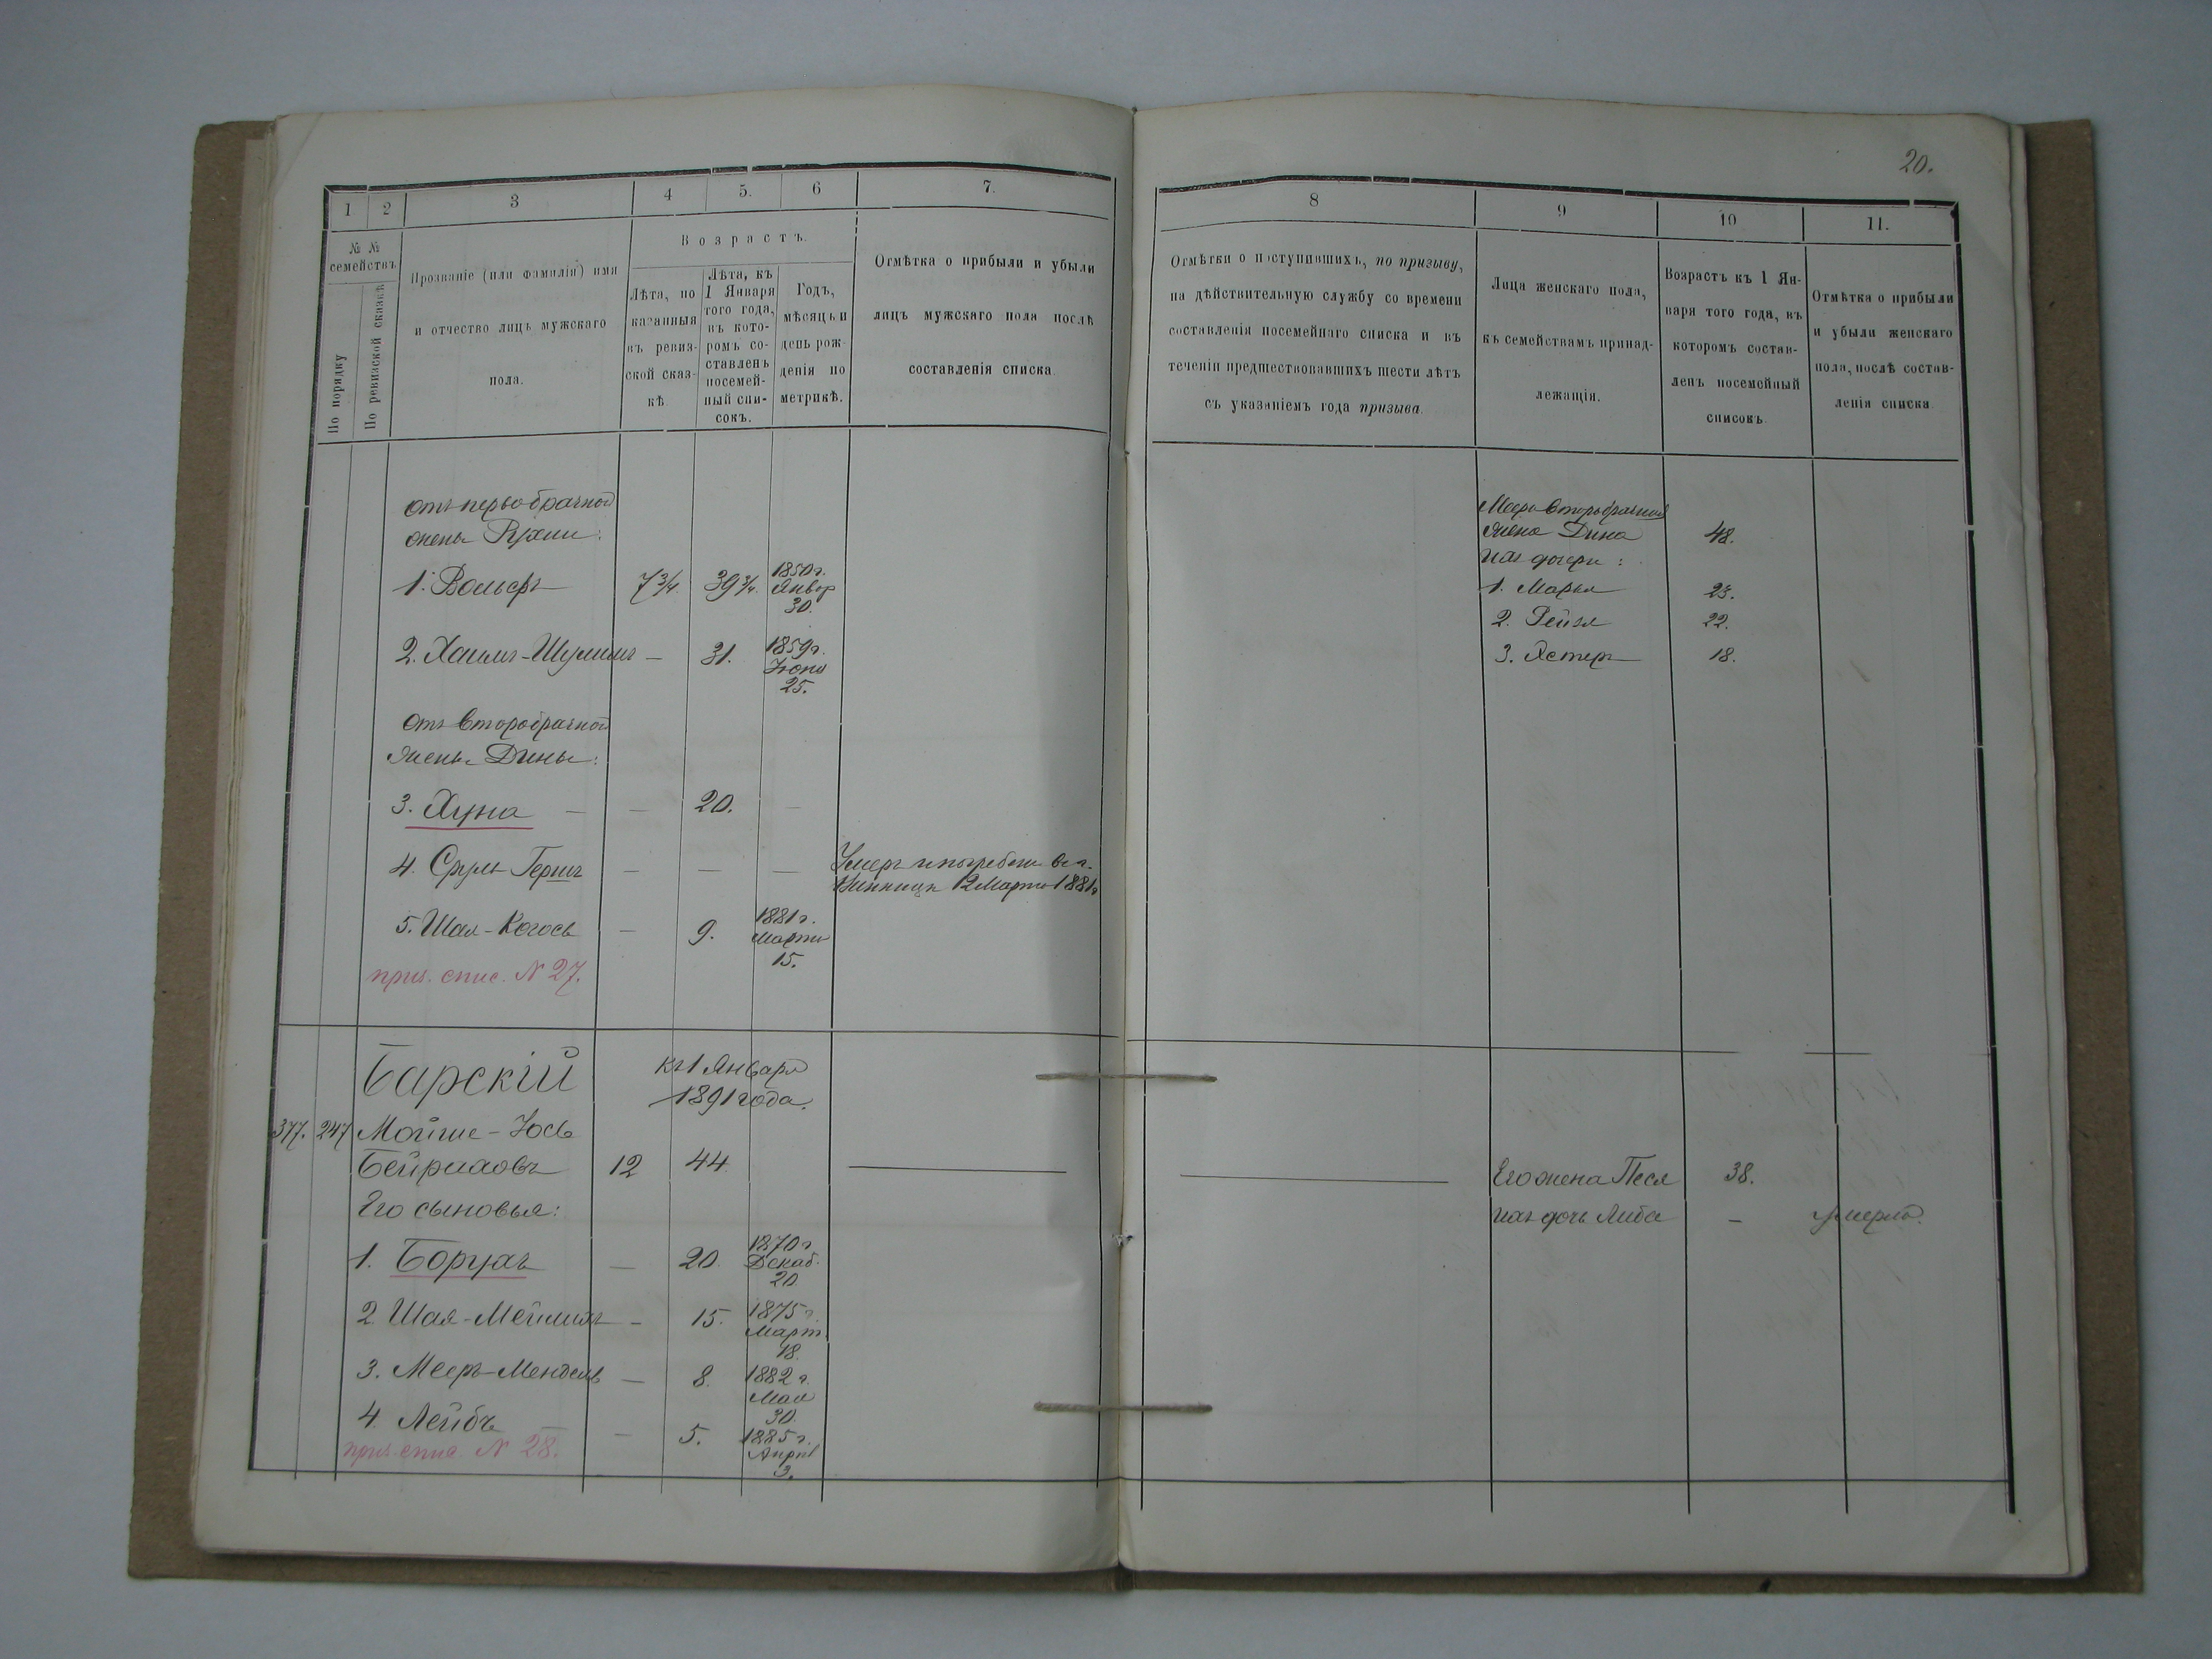 20.
1 2 3 4 5. 6 7.
№ № семействъ
По порядку
По ревизской сказкѣ
Прозваніе (или фамилія) имя
и отчество лицъ мужскаго
пола.
Возрастъ.
Лѣта, по
казанныя
въ ревиз-
ской сказ-
кѣ
Лѣта, къ
1 Января
того года,
въ кото-
ромъ со-
ставленъ
посемей-
ный спи-
сокъ.
Годъ,
мѣсяцъ и
день рож-
денія по
метрикѣ.
Отмѣтка о прибыли и убыли
лицъ мужскаго пола послѣ
составленія списка
8 9 10 11.
Отмѣтки о поступившихъ, по призыву,
на дѣйствительную службу со времени
составленія посемейнаго списка и въ
теченіи предшествовавшихъ шести лѣтъ
съ указаніемъ года призыва.
Лица женскаго пола,
къ семействамъ принад-
лежащія.
Возрастъ къ 1 Ян-
варя того года, въ
которомъ состав-
ленъ посемейный
списокъ
Отмѣтка о прибыли
и убыли женскаго
пола, послѣ состав-
ленія списка
отъ первобрачной
жены Рухли:
1. Вольфъ 7 3/4. 39 3/4. 1850 г.
Январ
30.
2. Хаимъ-Шулимъ — 31. 1859 г.
Іюня
25.
отъ второбрачной
жены Дины:
3. Хуна — — 20. —
4. Сруль-Гершъ — — — Умеръ и погребенъ в г.
Винницѣ 12 Марта 1881 г
5. Шая-Когосъ — 9. 1881 г.
Марта
15.
приз. спис. N 27.
второбрачная
жена Дина 48.
ихъ дочери:
1. Марья 25.
2. Рейзя 22.
3. Эстеръ 18.
Барскій къ 1 Января
1891 года.
377. 247 Мойше-Іось
Бейриховъ 12 44.
Его сыновья:
1. Борухъ — 20. 1870 г
Декаб.
20
2 Шая-Мейлихъ — 15. 1875 г.
Март
18.
3. Мееръ-Мендель — 8. 1882 г.
Мая
30.
4. Лейбъ — 5. 1885 г.
Апрѣл
3.
приз. спис. N 28.
Его жена Песя 38.
ихъ дочь Либа — умерла.